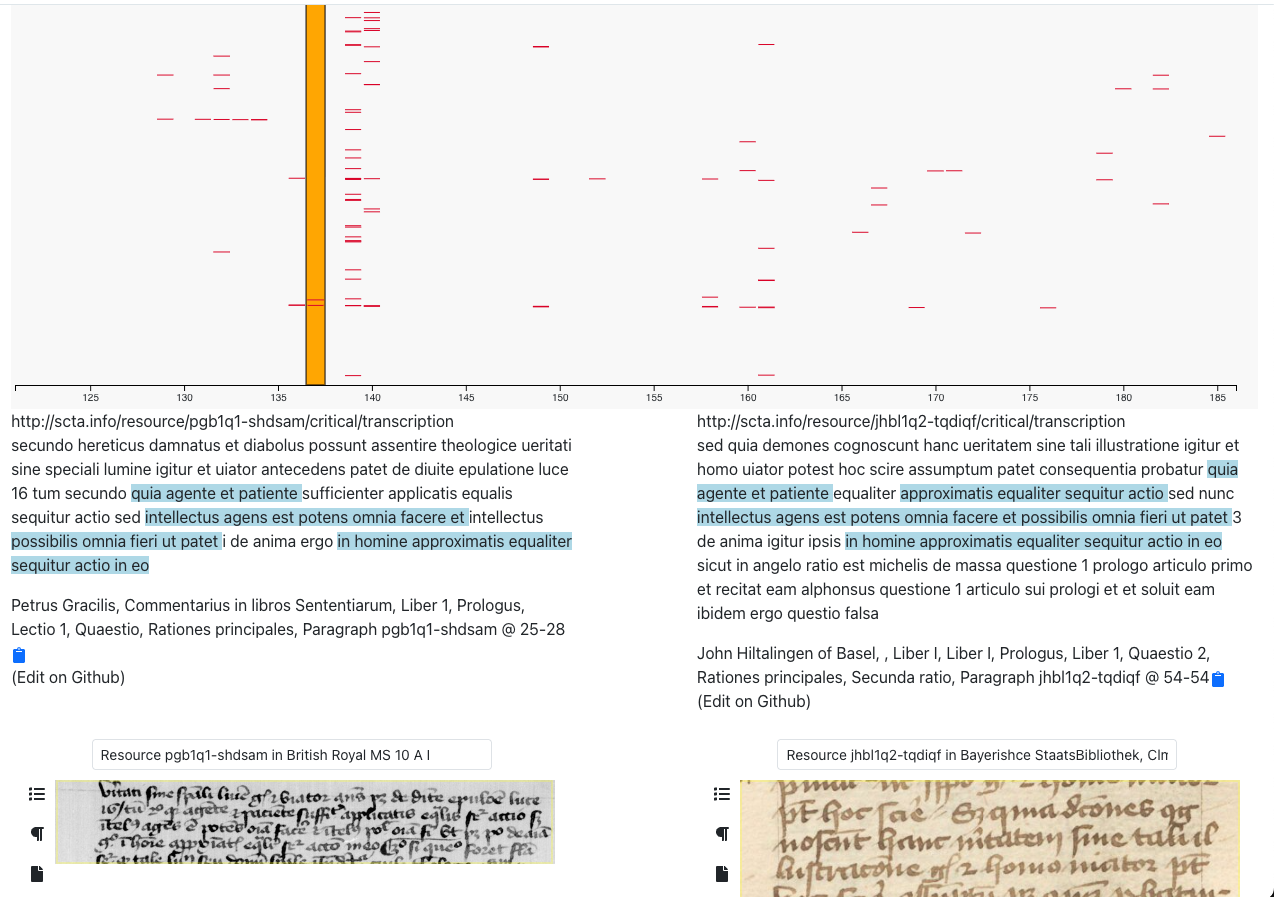 125 130 135 140 145 150 155 160 165 170 175 180 185
http://scta.info/resource/pgb1q1-shdsam/critical/transcription
secundo hereticus damnatus et diabolus possunt assentire theologice ueritati
sine speciali lumine igitur et uiator antecedens patet de diuite epulatione luce
16 tum secundo quia agente et patiente sufficienter applicatis equalis
sequitur actio sed intellectus agens est potens omnia facere et intellectus
possibilis omnia fieri ut patet i de anima ergo in homine approximatis equaliter
sequitur actio in eo
Petrus Gracilis, Commentarius in libros Sententiarum, Liber 1, Prologus,
Lectio 1, Quaestio, Rationes principales, Paragraph pgb1q1-shdsam @ 25-28
(Edit on Github)
Resource pgb1q1-shdsam in British Royal MS 10 A I
http://scta.info/resource/jhbl1q2-tqdiqf/critical/transcription
sed quia demones cognoscunt hanc ueritatem sine tali illustratione igitur et
homo uiator potest hoc scire assumptum patet consequentia probatur quia
agente et patiente equaliter approximatis equaliter sequitur actio sed nunc
intellectus agens est potens omnia facere et possibilis omnia fieri ut patet 3
de anima igitur ipsis in homine approximatis equaliter sequitur actio in eo
sicut in angelo ratio est michelis de massa questione 1 prologo articulo primo
et recitat eam alphonsus questione 1 articulo sui prologi et et soluit eam
ibidem ergo questio falsa
John Hiltalingen of Basel, , Liber I, Liber I, Prologus, Liber 1, Quaestio 2,
Rationes principales, Secunda ratio, Paragraph jhbl1q2-tqdiqf @ 54-54
(Edit on Github)
Resource jhbl1q2-tqdiqf in Bayerishce StaatsBibliothek, Cln